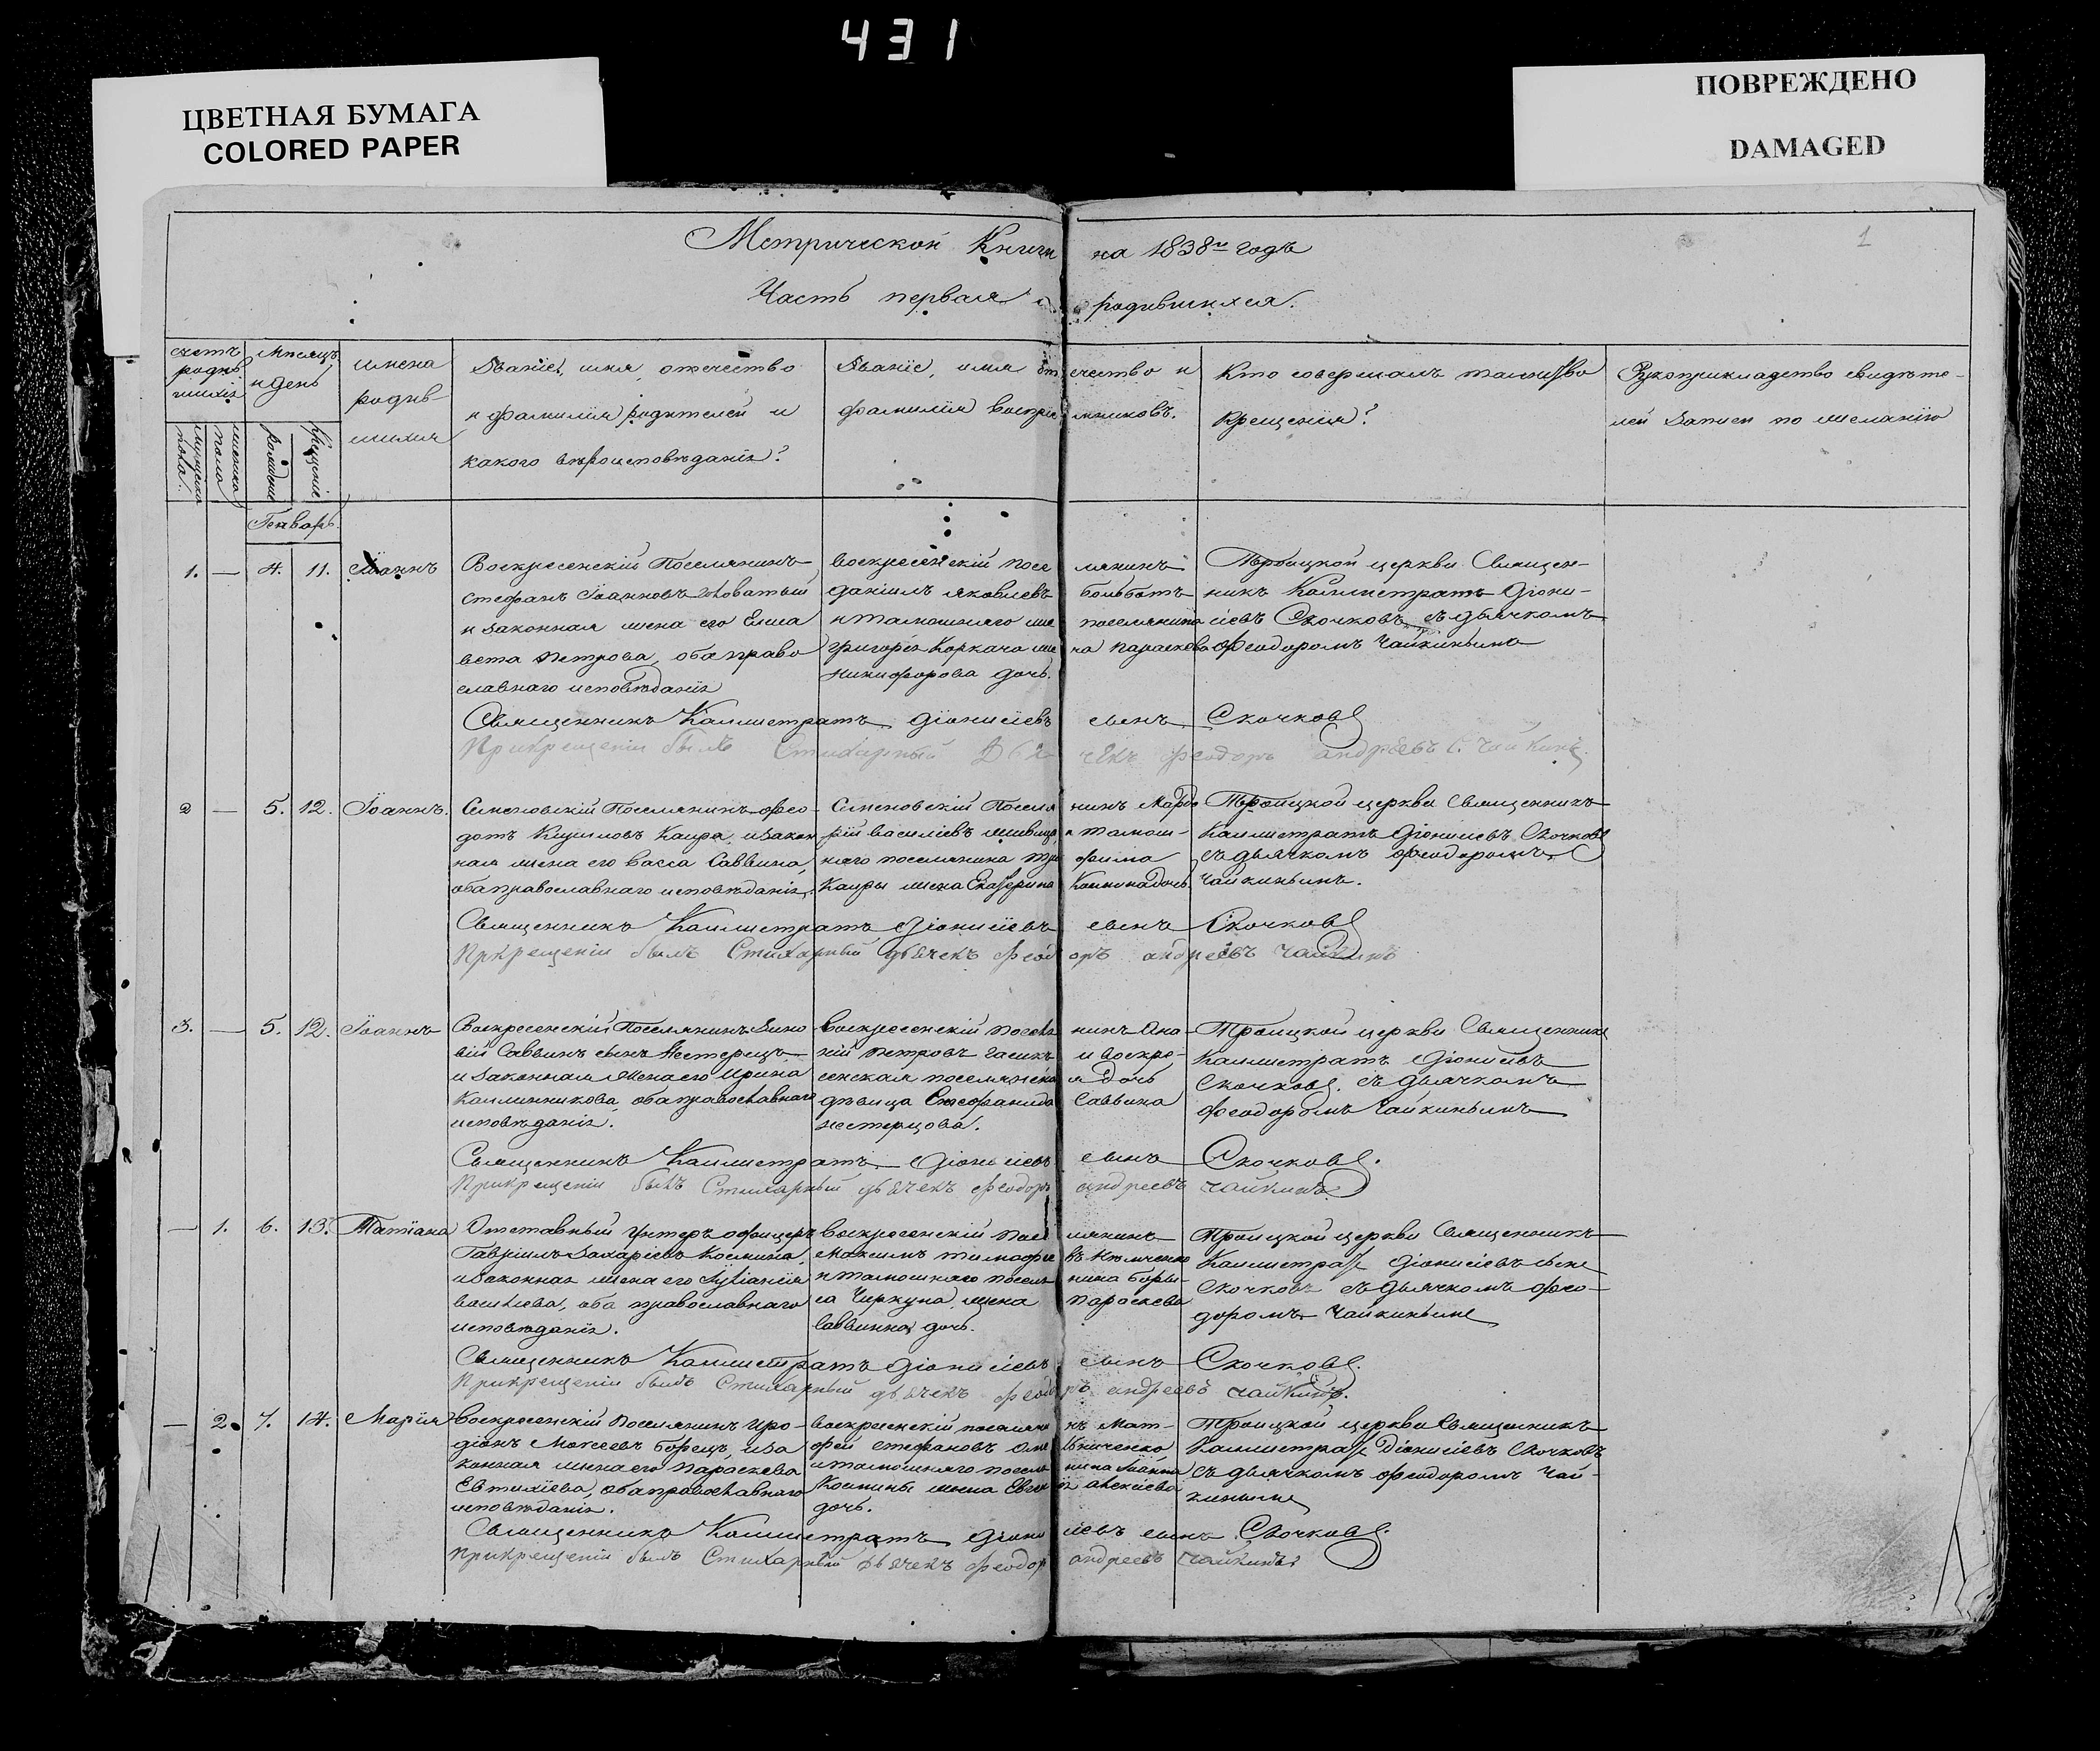 431
ЦВЕТНАЯ БУМАГА
COLORED PAPER
ПОВРЕЖДЕНО
DAMAGED
1
Метрической Книги на 1838й годъ
Часть первая о родившихся.
счетъ родившихся
Мѣсяцъ и день
имена родившихся
Званіе, имя, отечество
и фамилія родителей и
какого вѣроисповѣданія?
Званіе, имя отечество и
фамилія воспріемниковъ.
Кто совершалъ таинство
крещенія?
Рукоприкладство свидѣтелей
записи по желанію
мужеска пола
женска пола
рожденіе
крещеніе
Генварь.
1. — 4. 11. Іоаннъ
Воскресенскій Поселянинъ
Стефанъ Іоанновъ
и законная жена его Елиса
вета Петрова, оба право
славнаго исповѣданія
воскресенскій поселянинъ
даніилъ яковлевъ
и тамошняго поселянина
григорія Коркача жена параскева
никифорова дочь.
Троицкой церкви Священ-
никъ Каллистратъ Діони-
сіевъ Скочковъ съ дьячкомъ
Феодоромъ Чайкинымъ
Священникъ Каллистратъ Діонисіевъ сынъ Скочковъ
При крещеніи былъ Стихарный Дьячекъ Феодоръ андреевъ с. Чайкинъ.
2 — 5. 12. Іоаннъ.
Семеновскій Поселянинъ Фео-
дотъ Каира, и закон
ная жена его Васса Саввина,
оба православнаго исповѣданія.
Семеновскій Поселянинъ
василіевъ и тамош-
няго поселянина Трифима
Каиры жена Екатерина дочь.
Троицкой церкви Священникъ
Каллистратъ Діонисіевъ Скочковъ
съ дьячкомъ Феодоромъ
Чайкинымъ.
Священникъ Каллистратъ Діонисіевъ сынъ Скочковъ
При крещеніи былъ Стихарный дьячекъ Феодоръ андреевъ Чайкинъ
3. — 5. 12. Іоаннъ
Воскресенскій Поселянинъ Зино
вій Саввинъ сынъ Нестерецъ
и законная жена его Ирина
Каллинникова, оба православнаго
исповѣданія.
воскресенскій поселянинъ Она-
ній Петровъ и воскре-
сенская поселянская дочь
дѣвица Стефанида Саввина
нестерцова.
Троицкой церкви Священникъ
Каллистратъ Діонисіевъ
Скочковъ съ дьячкомъ
Феодоромъ Чайкинымъ
Священникъ Каллистратъ Діонисіевъ сынъ Скочковъ.
При крещеніи былъ Стихарный дьячекъ Феодоръ андреевъ Чайкинъ.
— 1. 6. 13. Татіана
Отставный Унтеръ офицеръ
Гавріилъ Захаріевъ
и законная жена его Іуліанія
василіева, оба православнаго
исповѣданія.
воскресенскій поселянинъ
Максимъ тимофеевъ
и тамошняго поселянина Бори-
са Чиркуна жена Параскева
Саввина дочь.
Троицкой церкви Священникъ
Каллистратъ Діонисіевъ сынъ
Скочковъ съ дьячкомъ Фео-
доромъ Чайкинымъ
Священникъ Каллистратъ Діонисіевъ сынъ Скочковъ.
При крещеніи былъ Стихарный дьячекъ Феодоръ андреевъ Чайкинъ.
— 2. 7. 14. Марія
воскресенскій поселянинъ Иро-
діонъ Моисеевъ Борецъ, и за
конная жена его Параскева
Евтихіева, оба православнаго
исповѣданія.
воскресенскій поселянинъ Мат-
фей стефановъ
и тамошняго поселянина Іоанна
жена Евгенія алексіева
дочь.
Троицкой церкви Священникъ
Каллистратъ Діонисіевъ Скочковъ
съ дьячкомъ Феодоромъ Чай-
кинымъ
Священникъ Каллистратъ Діонисіевъ сынъ Скочковъ.
При крещеніи былъ Стихарный Дьячекъ Феодоръ андреевъ Чайкинъ